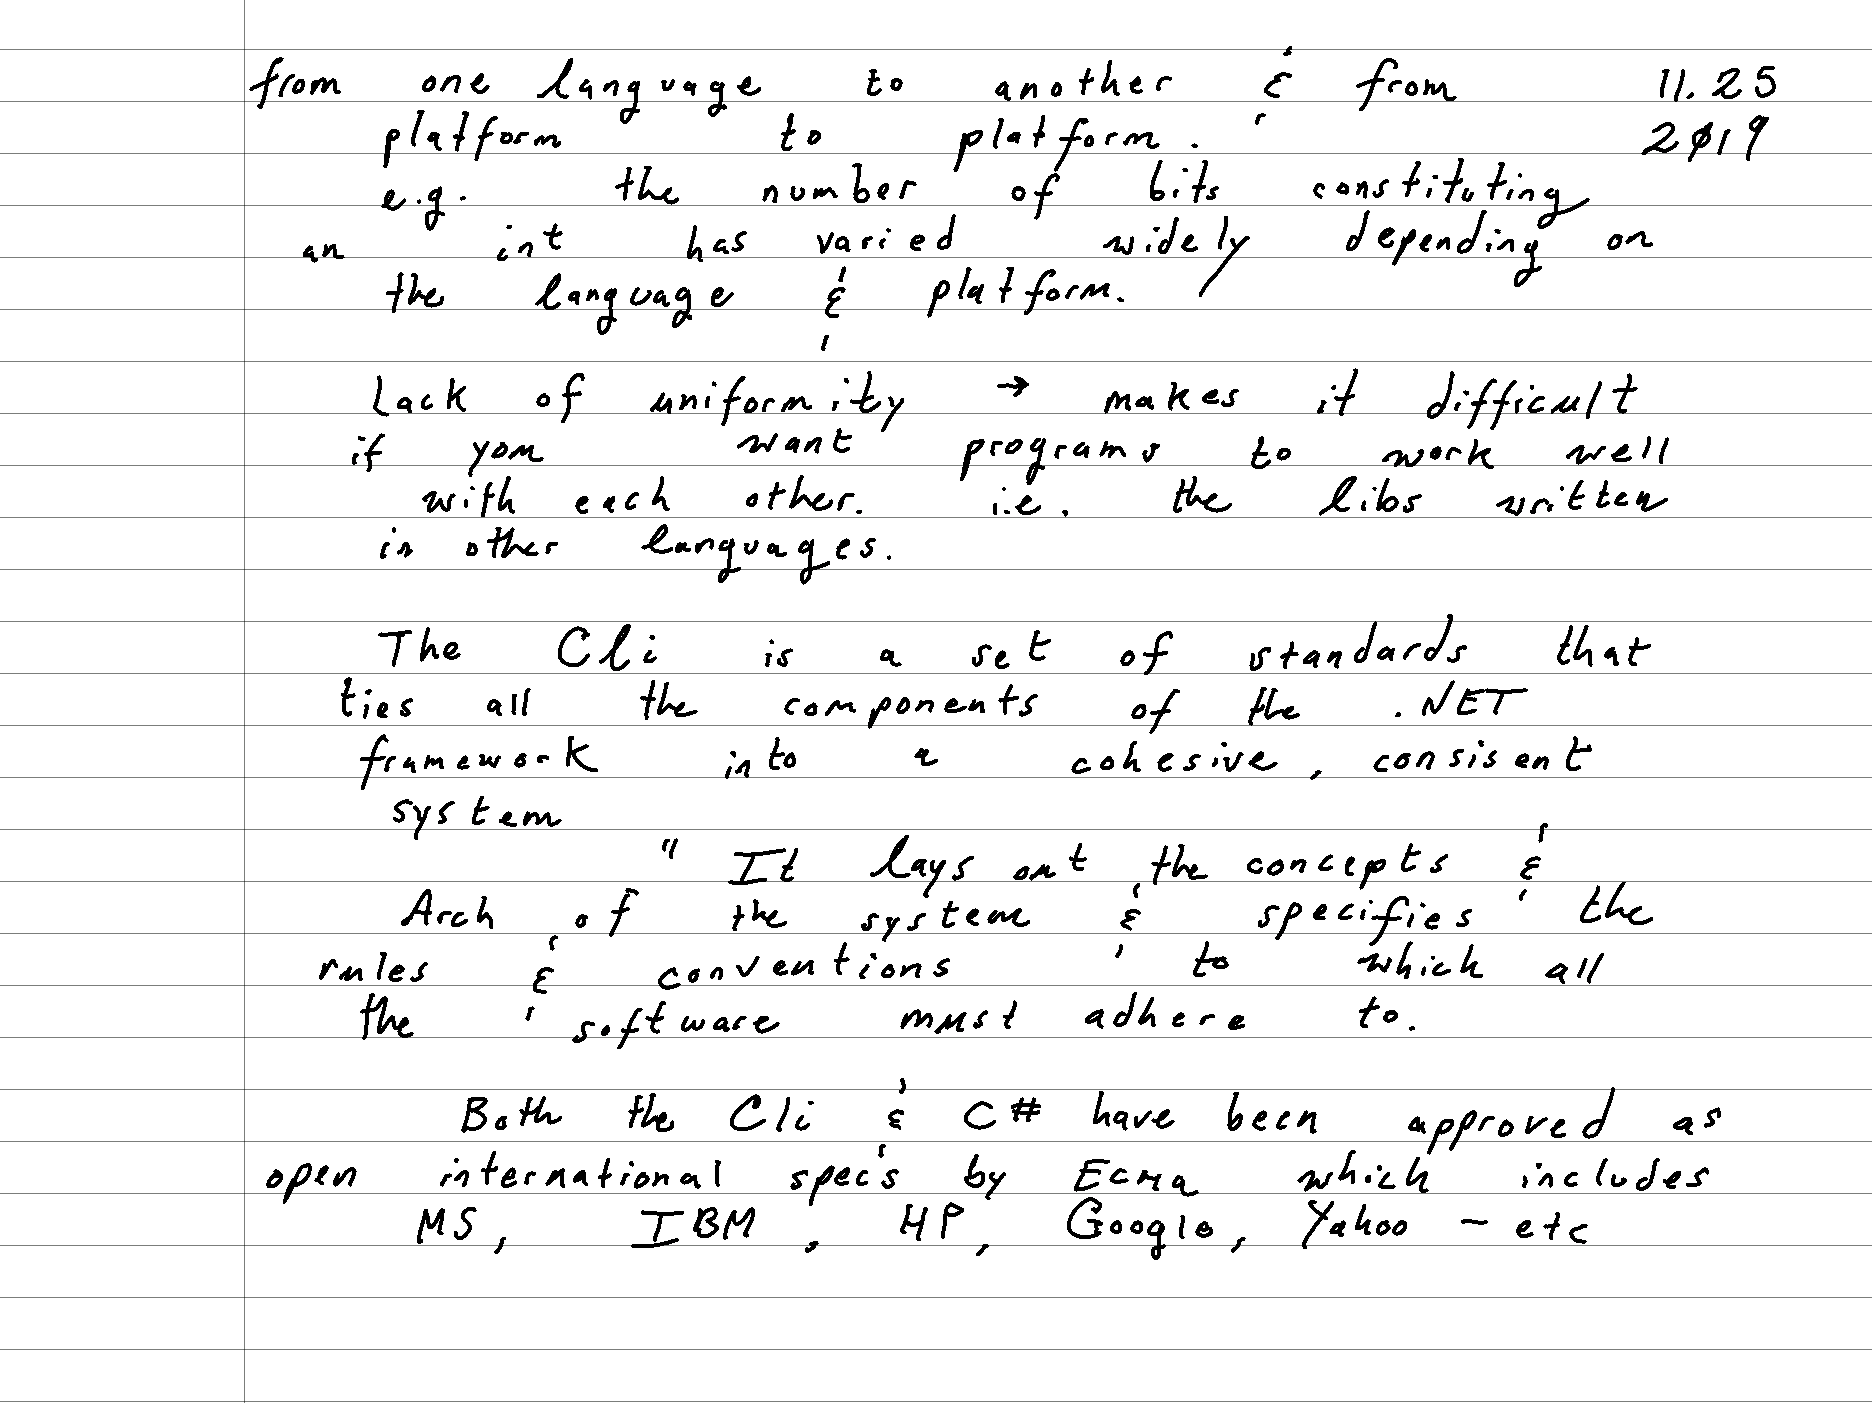 from one language to another & from 11.25
platform to platform. 2019
e.g. the number of bits constituting
an int has varied widely depending on
the language & platform.
Lack of uniformity → makes it difficult
if you want programs to work well
with each other. i.e. the libs written
in other languages.
The Cli is a set of standards that
ties all the components of the .NET
framework into a cohesive, consisent
system
" It lays out the concepts &
Arch of the system & specifies the
rules & conventions to which all
the software must adhere to.
Both the Cli & C# have been approved as
open international spec's by Ecma which includes
MS, IBM, HP, Google, Yahoo - etc